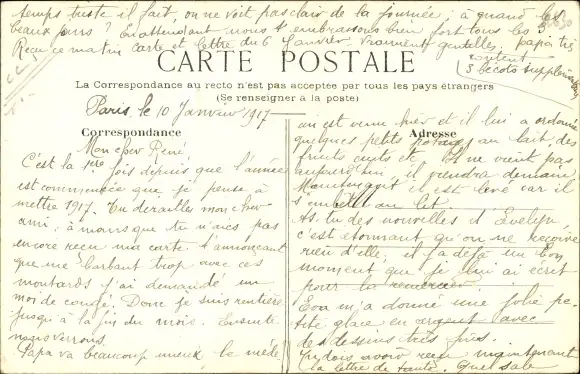 temps triste il fait, on ne voit pas clair de la journée; à quand les
beaux jours? En attendant nous t'embrassons bien fort tous les 3
Reçu ce matin carte et lettre du 6 Janvier, vraiment gentilles, papa très
content
3 bécots supplémen
CARTE POSTALE
La Correspondance au recto n'est pas acceptée par tous les pays étrangers
(Se renseigner à la poste)
Paris, le 10 Janvier 1917
Correspondance
Mon cher René
C'est la 1ère fois depuis que l'année
est commencée que je pense à
mettre 1917. Tu dérailles mon cher
ami, à moins que tu n'aies pas
encore reçu ma carte t'annonçant
que me barbant trop avec ces
moutards j'ai demandé un
mois de congé. Donc je suis rentière
jusqu'à la fin du mois. Ensuite
nous verrons.
Papa va beaucoup mieux le méde
Adresse
cin est venu hier et il lui a ordonné
quelques petits potages au lait, des
fruits cuits et ne vient pas
aujourd'hui, il viendra demain.
Maintenant il est levé car il
s'en au lit.
As-tu des nouvelles d'Evelyn,
c'est étonnant qu'on ne reçoive
rien d'elle, il y a déjà un bon
moment que je lui ai écrit
pour la remercier.
Eva m'a donné une jolie pe-
tite glace en argent avec
des dessins très jolis.
avoir reçu maintenant
la lettre de tante. Quel sale